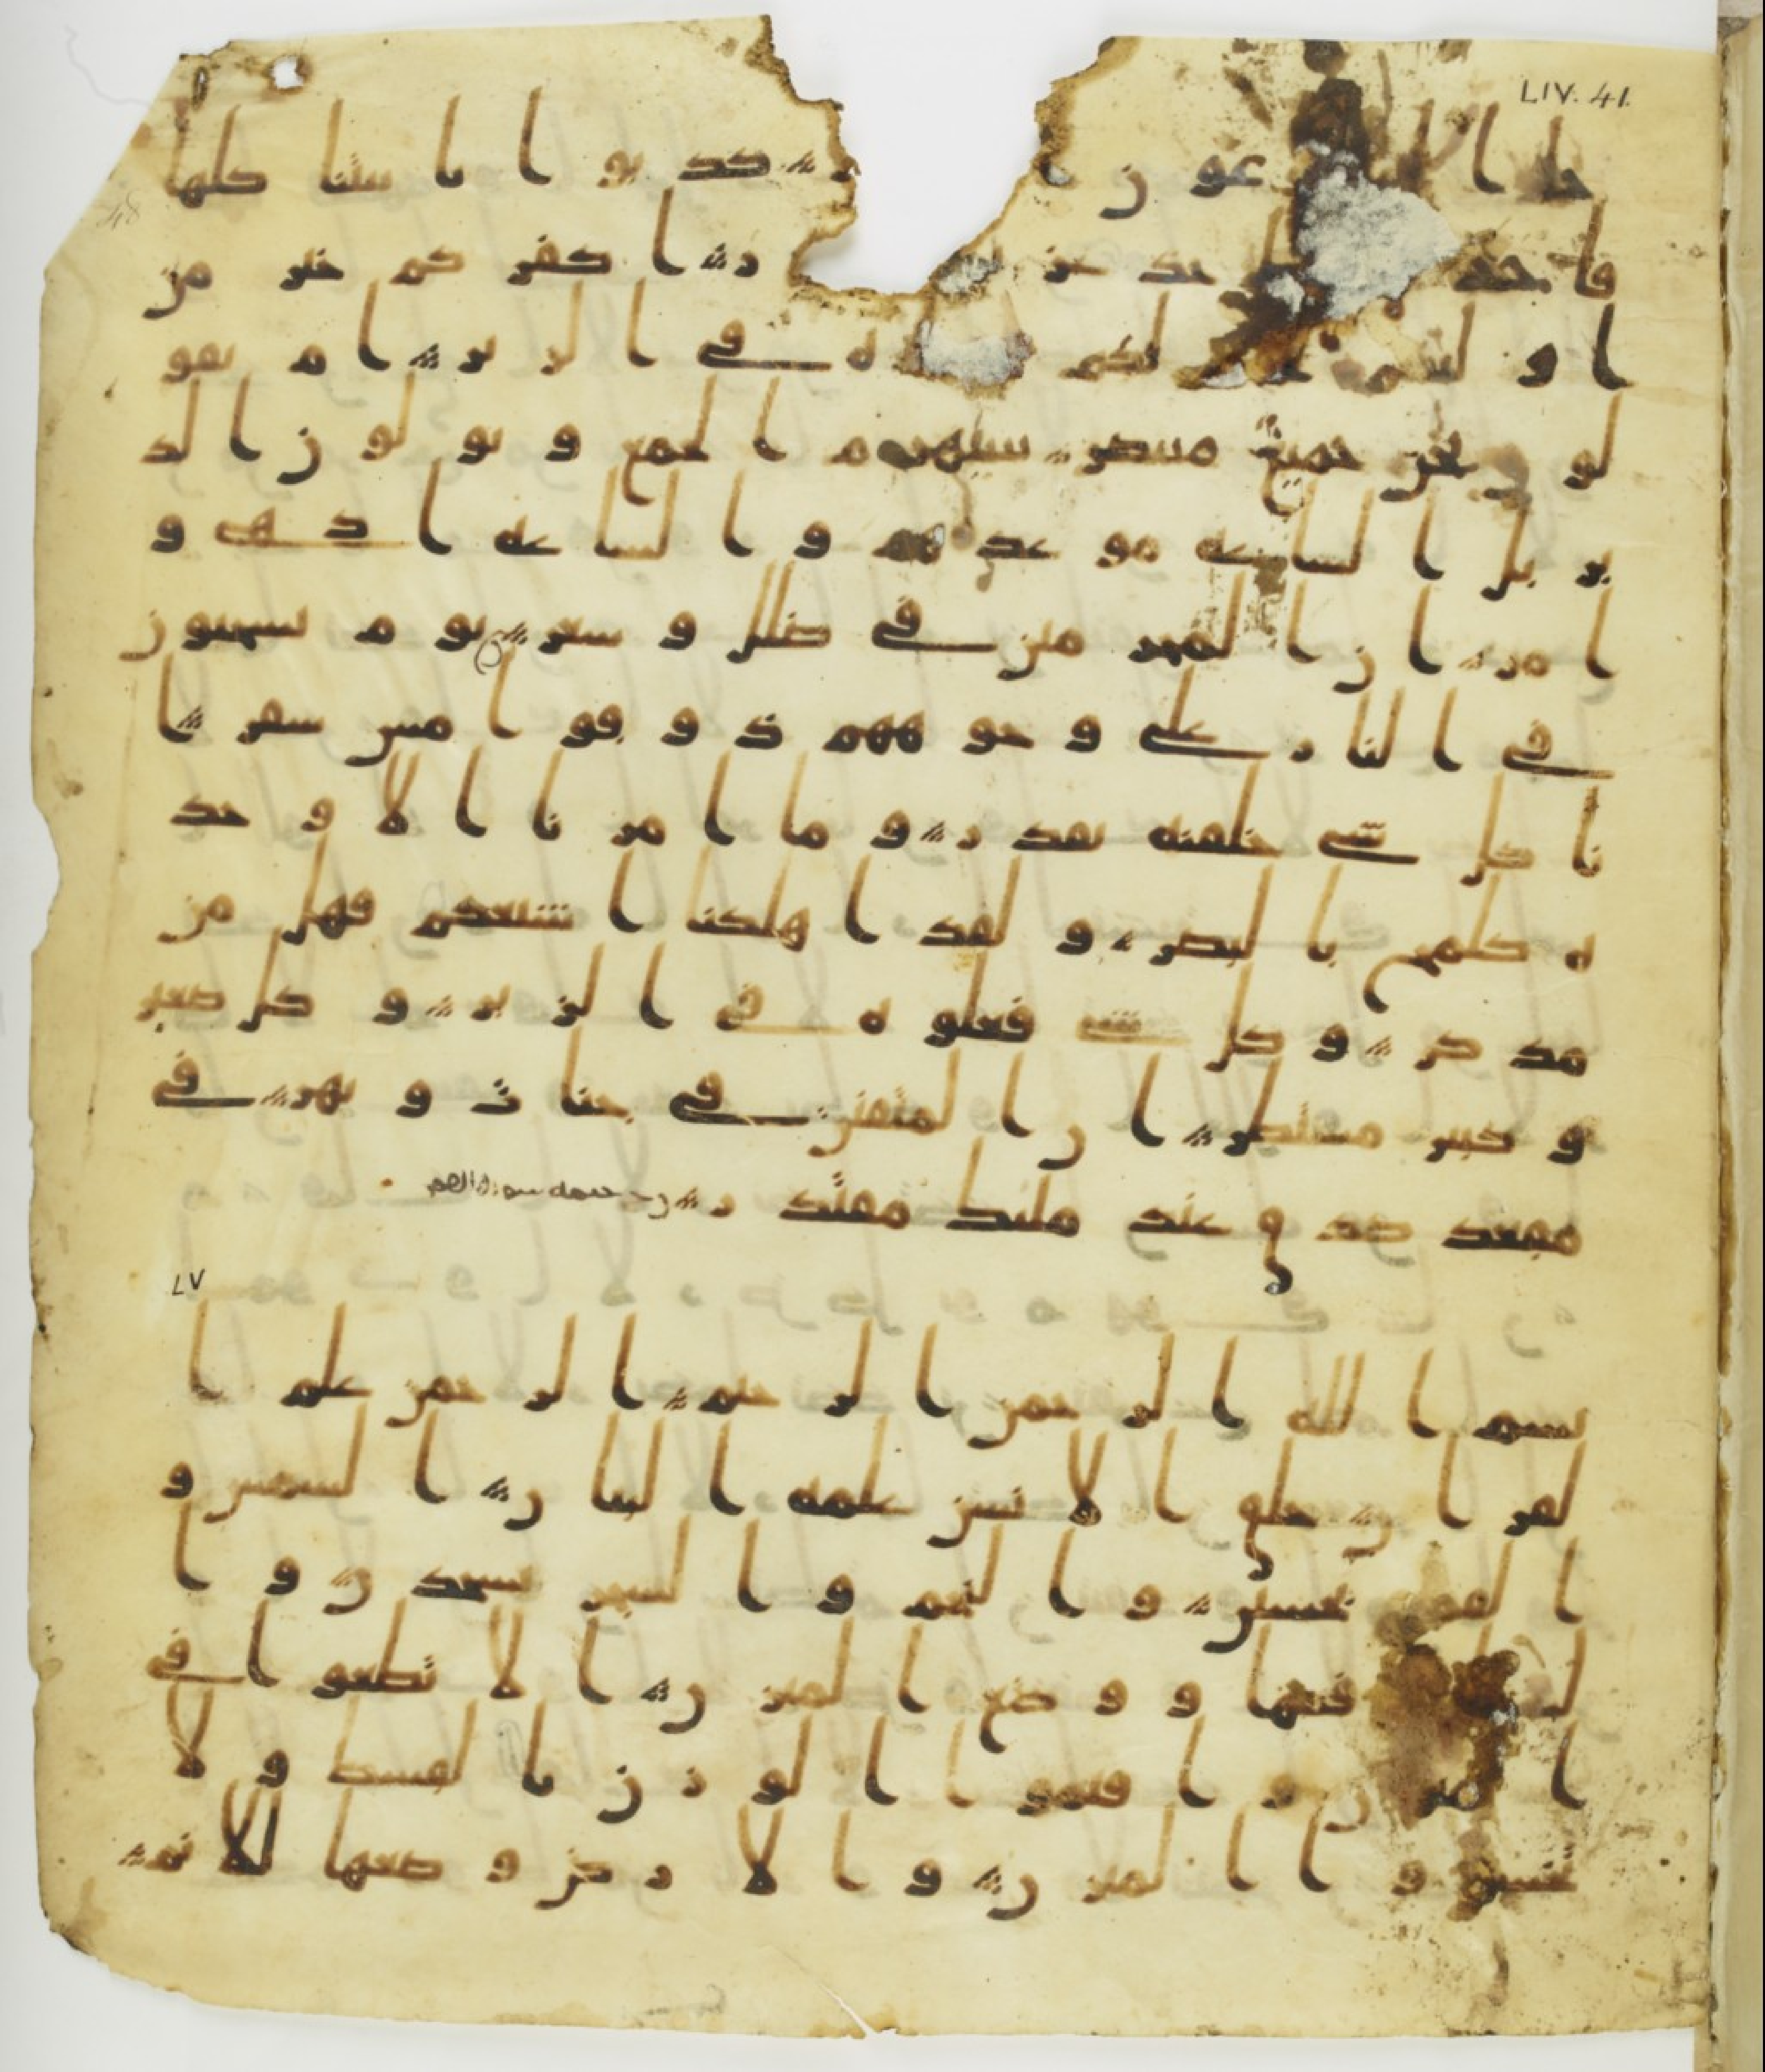 LIV. 41.
جا ال عون كذبوا باىتنا كلها
فاخذ خذ عز ر اكفركم خير من
اولىكم لكم ه في الزبر ام يقو
لو نحن جميع منتصر سيهزم الجمع ويولون الد
بر بل الساعه موعدهم والساعه ادهى و
امر ان المجرمين في ضلل وسعر يوم يسحبون
في النار على وجوههم ذوقوا مس سقر ا
نا كل شي خلقنه بقدر وما امرنا الا وحد
ه كلمح بالبصر ولقد اهلكنا اشيعكم فهل من
مدكر وكل شي فعلوه في الزبر وكل صغير
وكبير مستطر ان المتقين في جنات ونهر في
مقعد صدق عند مليك مقتدر
LV
بسم الله الرحمن الرحيم الرحمن علم ا
لقران خلق الانسن علمه البيان الشمس و
القمر بحسبن والنجم والشجر يسجدن وا
لسما رفعها ووضع الميزن الا تطغوا في
الميزن واقيموا الوزن بالقسط ولا
تخسروا الميزن والارض وضعها للانم